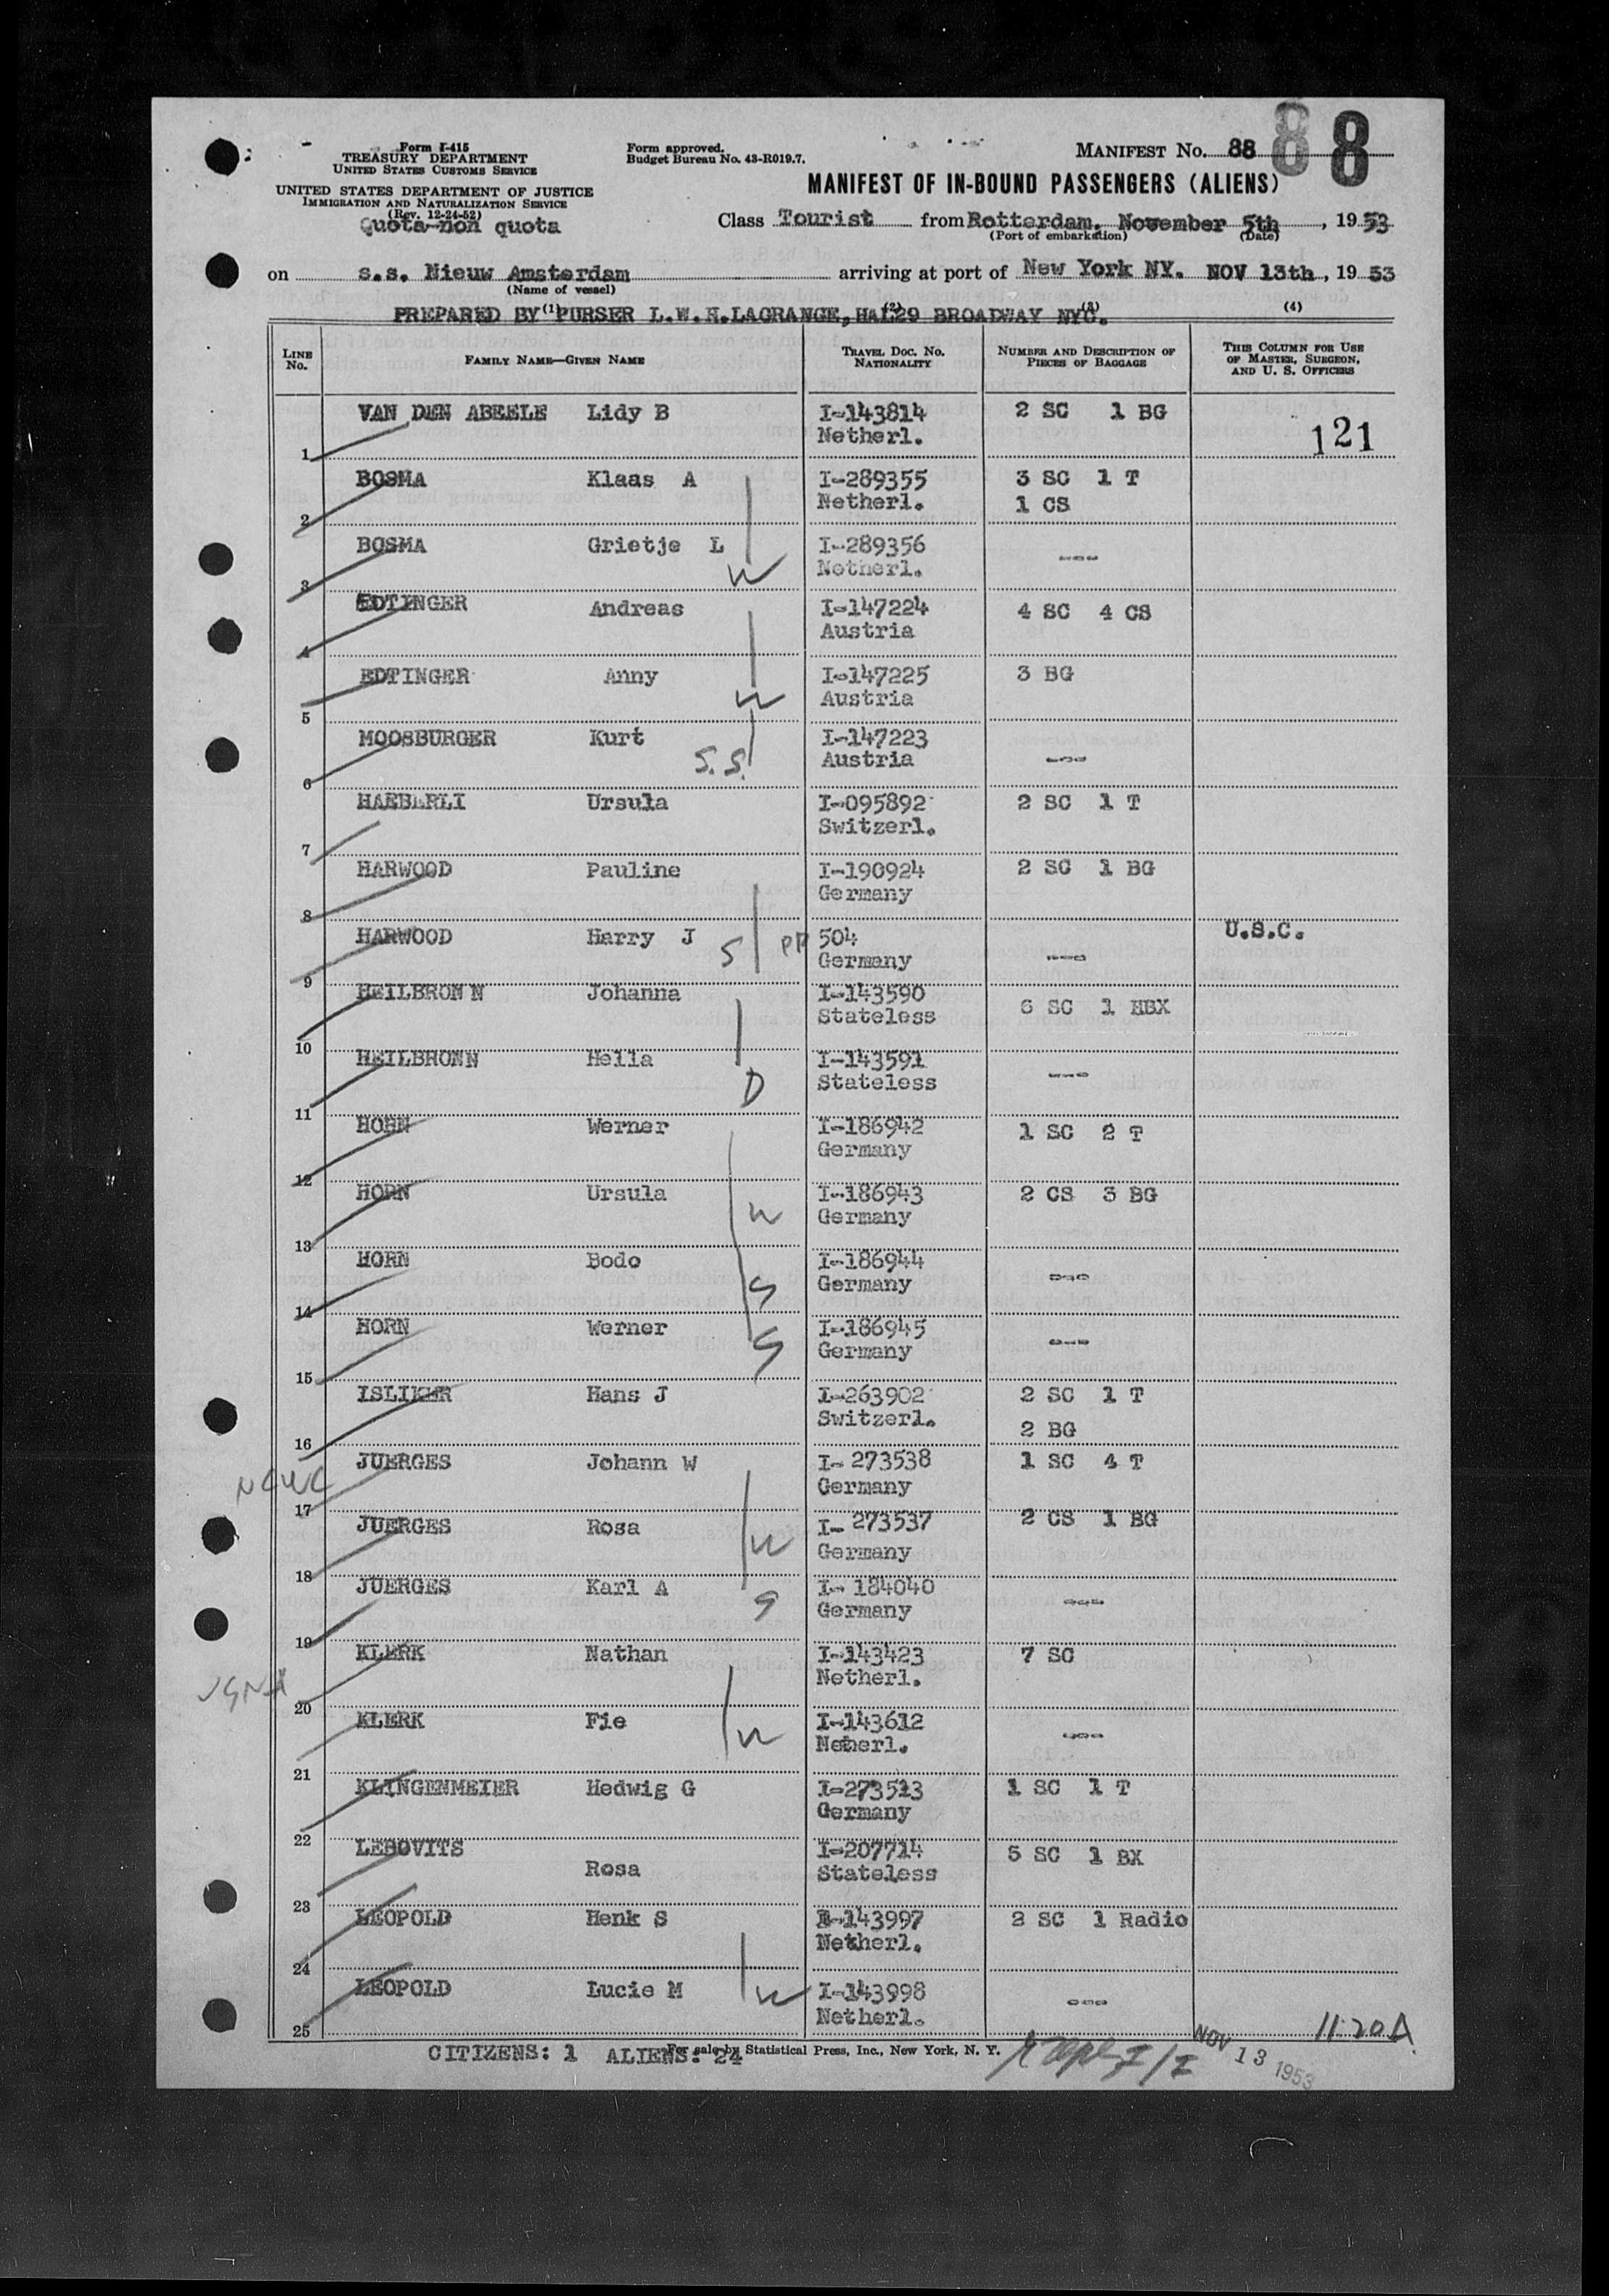 88
Form I-415
TREASURY DEPARTMENT
UNITED STATES CUSTOMS SERVICE
UNITED STATES DEPARTMENT OF JUSTICE
IMMIGRATION AND NATURALIZATION SERVICE
(Rev. 12-24-52)
Quota-non quota
Form approved.
Budget Bureau No. 43-R019.7.
MANIFEST NO. 88
MANIFEST OF IN-BOUND PASSENGERS (ALIENS)
Class Tourist from Rotterdam, November 5th, 1953
(Port of embarkation) (Date)
on s.s. Nieuw Amsterdam arriving at port of New York NY. NOV 13th, 1953
(Name of vessel)
PREPARED BY PURSER L.W.H.LAGRANGE, HAL29 BROADWAY NYC.
(1) (2) (3) (4)
LINE NO. FAMILY NAME—GIVEN NAME TRAVEL DOC. NO. NATIONALITY NUMBER AND DESCRIPTION OF PIECES OF BAGGAGE THIS COLUMN FOR USE OF MASTER, SURGEON, AND U. S. OFFICERS
1 VAN DEN ABEELE Lidy B I-143814 2 SC 1 BG
Netherl. 121
2 BOSMA Klaas A I-289355 3 SC 1 T
Netherl. 1 CS
3 BOSMA Grietje L I-289356 ---
W Netherl.
4 EDTINGER Andreas I-147224 4 SC 4 CS
Austria
5 EDTINGER Anny I-147225 3 BG
W Austria
6 MOOSBURGER Kurt I-147223 ---
S.S. Austria
7 HAEBERLI Ursula I-095892 2 SC 1 T
Switzerl.
8 HARWOOD Pauline I-190924 2 SC 1 BG
Germany
9 HARWOOD Harry J S PP 504 --- U.S.C.
Germany
10 HEILBRONN Johanna I-143590 6 SC 1 HBX
Stateless
11 HEILBRONN Hella I-143591 ---
D Stateless
12 HORN Werner I-186942 1 SC 2 T
Germany
13 HORN Ursula I-186943 2 CS 3 BG
W Germany
14 HORN Bodo I-186944 ---
S Germany
15 HORN Werner I-186945 ---
S Germany
16 ISLIKER Hans J I-263902 2 SC 1 T
Switzerl. 2 BG
NCWC
17 JUERGES Johann W I-273538 1 SC 4 T
Germany
18 JUERGES Rosa I-273537 2 CS 1 BG
W Germany
19 JUERGES Karl A I-184040 ---
S Germany
20 KLERK Nathan I-143423 7 SC
Netherl.
21 KLERK Fie I-143612 ---
W Netherl.
22 KLINGENMEIER Hedwig G I-273513 1 SC 1 T
Germany
23 LEBOVITS Rosa I-207714 5 SC 1 BX
Stateless
24 LEOPOLD Henk S I-143997 2 SC 1 Radio
Netherl.
25 LEOPOLD Lucie M I-143998 ---
W Netherl.
11 20 A
CITIZENS: 1 ALIENS: 24
For sale by Statistical Press, Inc., New York, N. Y.
NOV 13 1953